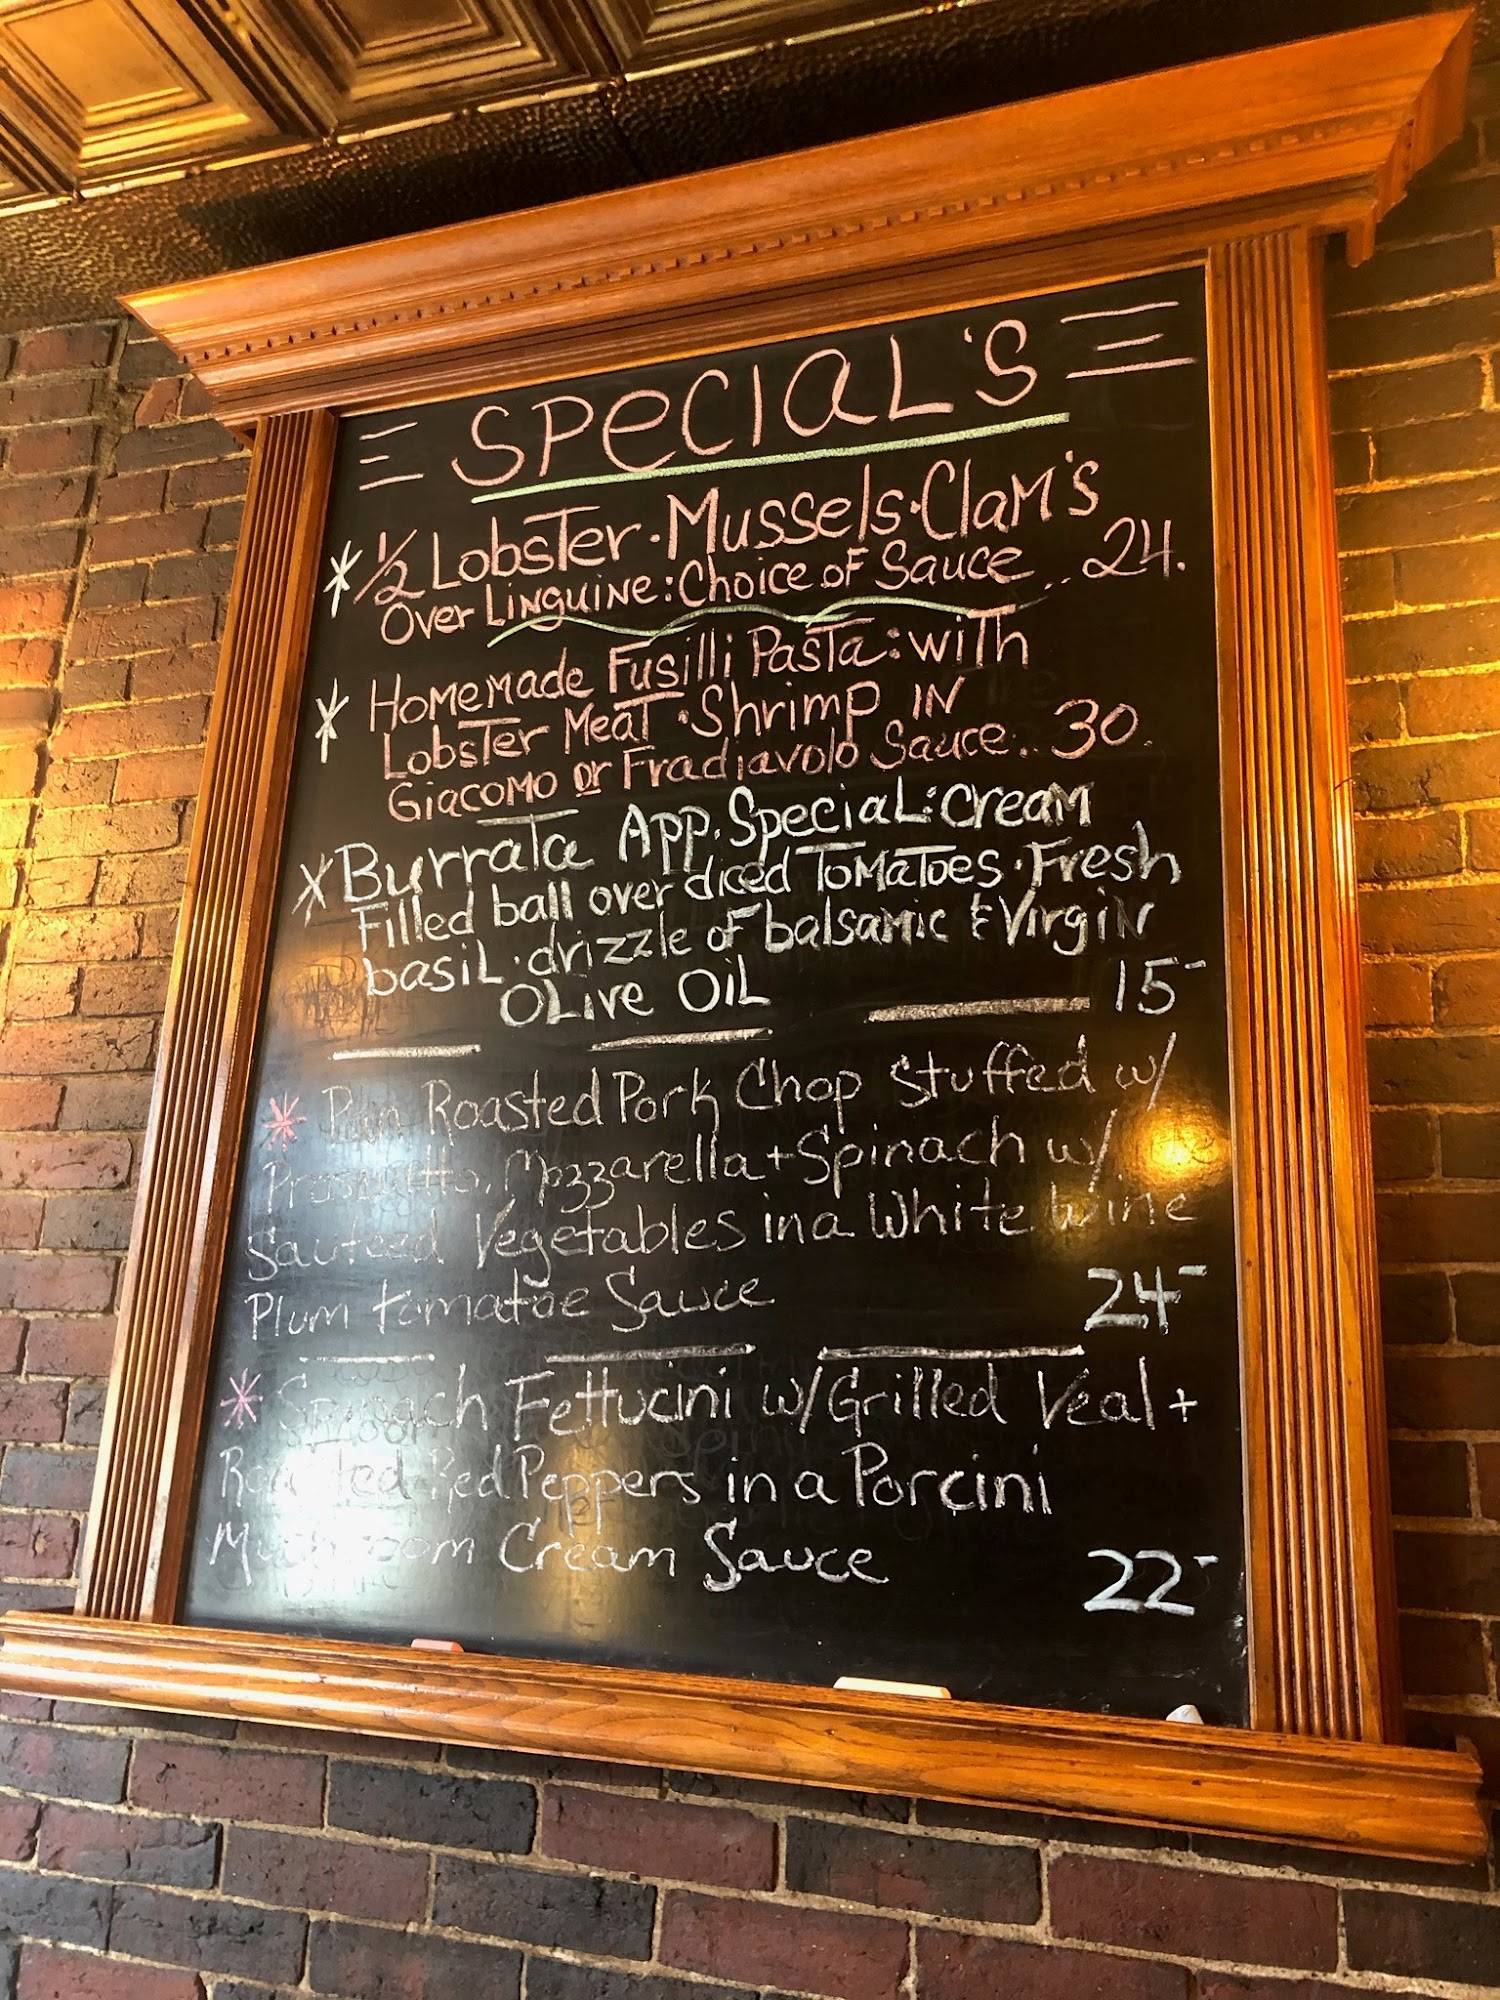 SPECIAL'S
* 1/2 Lobster · Mussels · Clam's
Over Linguine: Choice of Sauce .. 24.
* Homemade Fusilli Pasta: with
Lobster Meat · Shrimp IN
Giacomo or Fradiavolo Sauce.. 30.
* Burrata App. Special: Cream
Filled ball over diced Tomatoes · Fresh
basil · drizzle of balsamic & Virgin
Olive Oil 15-
* Pan Roasted Pork Chop Stuffed w/
Proscuitto, Mozzarella + Spinach w/
Sauteed Vegetables in a White Wine
Plum tomatoe Sauce 24-
* Spinach Fettucini w/ Grilled Veal +
Roasted Red Peppers in a Porcini
Mushroom Cream Sauce 22-